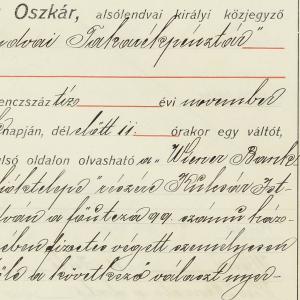 Oszkár, alsólendvai királyi közjegyző
ndvai Takarékpénztár"
enczszáz tíz évi november
napján, dél előtt 11 órakor egy váltót,
lső oldalon olvasható a „Wiener Bank
fióktelepe" részére Kulcsár Ist-
ván a főutcza 99. számú ház-
ében fizetés végett személyesen
a következő választ nyer-